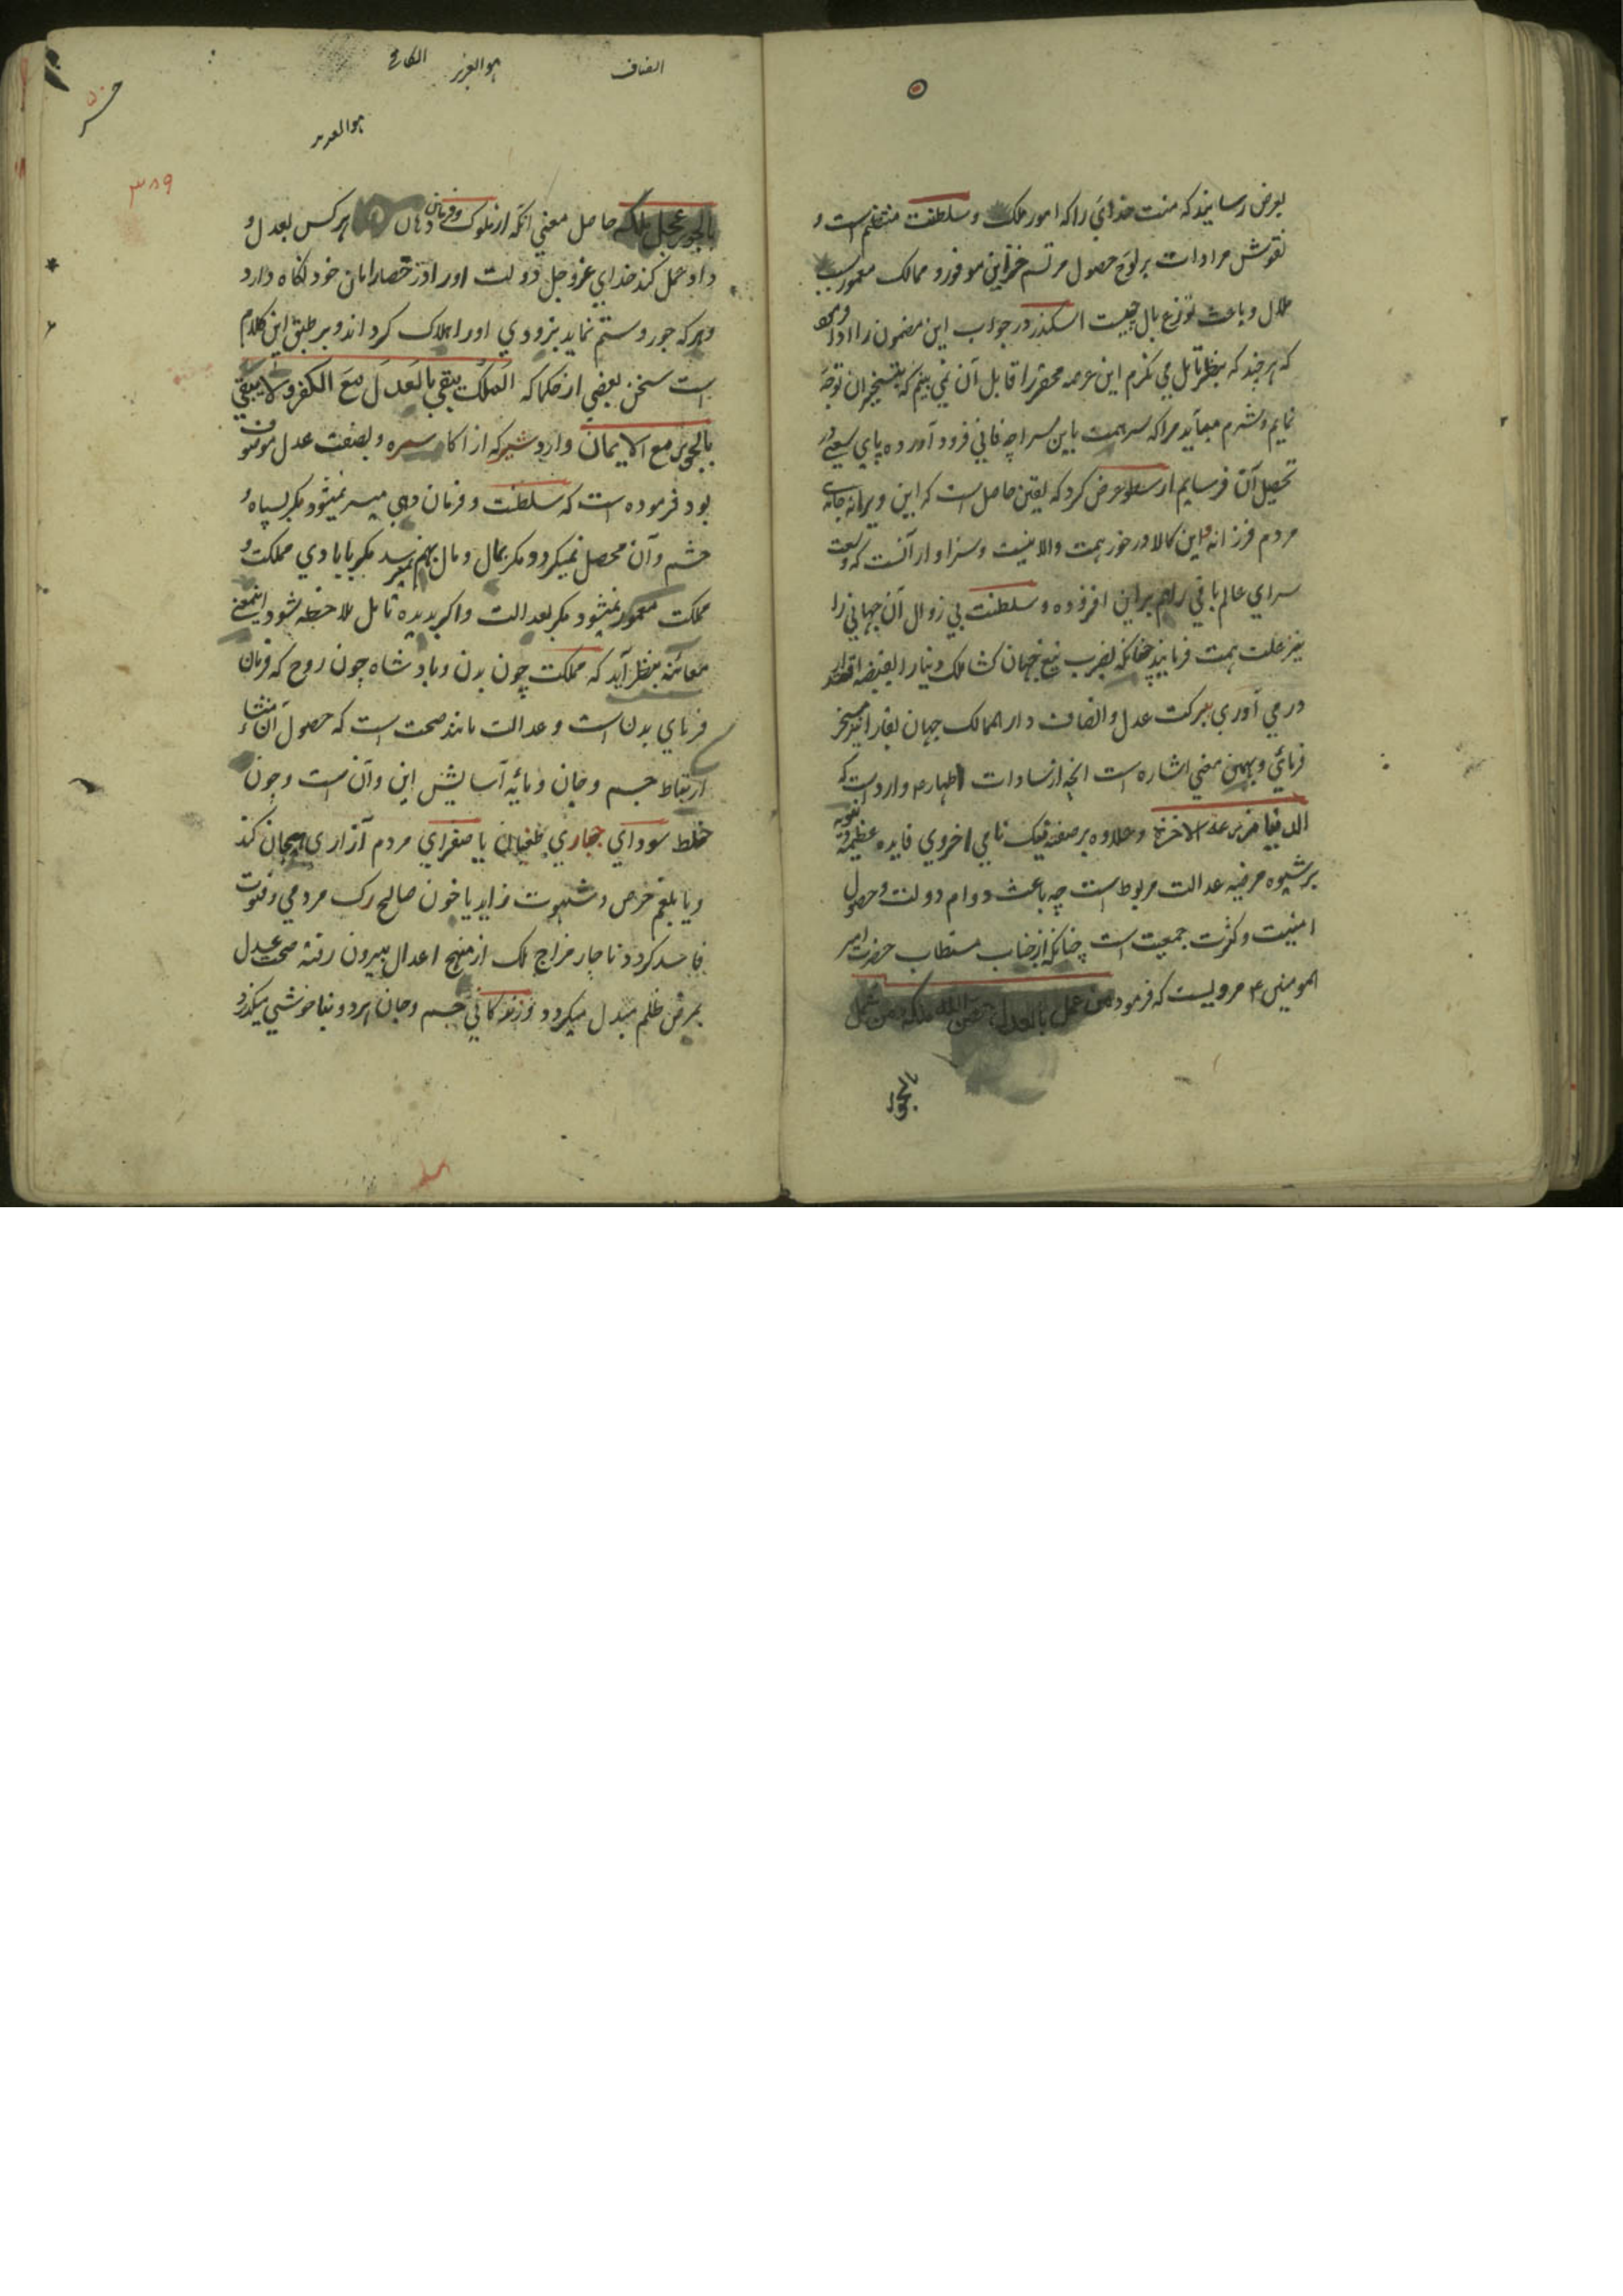 بعرض رسانید که منت خدایرا که امور ملک و سلطنت منتظم است و
نقوش مرادات بر لوح حصول مرتسم خزاین موفور و ممالک معمور سبب
ملال و باعث توزع بال چیست اسکندر در جواب این مضمون را ادا فرمود
که هر چند که بنظر تامل می نکرم این عرصه محقر را قابل آن نمی بینم که بتسخیر آن توجه
نمایم و شرم میآید مرا که سر همت باین سراچه فانی فرود آورده پای سعی در
تحصیل آن فرسایم ارسطو عرض کرد که یقین حاصل است که این ویرانه جای
مردم فرزانه و این کالا در خور همت والا نیست و سزاوار آنست که وسعت
سرای عالم باقی را هم بر این افزوده و سلطنت بی زوال آن جهانی را
همت فرمایند چنانکه بضرب تیغ جهان کشا ملک دنیا را بقبضه اقتدار
در می آوری ببرکت عدل و انصاف دار الممالک جهان بقا را نیز مسخر
فرمائی و بهمین معنی اشاره است انچه از سادات اطهار ع وارد است که
الدنیا مزرعة الاخرة و علاوه بر نیک نامی اخروی فایده عظیمه دنیویه
بر شیوه مرضیه عدالت مربوط است چه باعث دوام دولت و حصول
امنیت و کثرت جمعیت است چنانکه از جناب مستطاب حضرت امیر
المومنین ع مرویست که فرمود من عمل بالعدل حصن الله ملکه و من عمل
بالجور
انصاف
هو العزیز
۳۸۹
بالجور عجل هلکه حاصل معنی انکه از ملوک و فرمان دهان هر کس بعدل و
داد عمل کند خدای عز و جل دولت او را در حصار امان خود نکاه دارد
و هر که جور و ستم نماید بزودی او را هلاک کرداند و بر طبق این کلام
است سخن بعضی از حکما که الملک یبقی بالعدل مع الکفر و لا یبقی
بالجور مع الایمان و اردشیر که از اکاسره و بصفت عدل موصوف
بود فرموده است که سلطنت و فرمان دهی میسر نمیشود مکر بسپاه و
حشم و آن محصل نمیکردد مکر بمال و مال بهم نمیرسد مکر بابادی مملکت و
مملکت معمور نمیشود مکر بعدالت و اکر بدیده تامل ملاحظه شود اینمعنی
معائنه بنظر آید که مملکت چون بدن و بادشاه چون روح که فرمان
فرمای بدن است و عدالت مانند صحت است که حصول آن منشاء
ارتباط جسم و جان و مایه آسایش این و آن است و چون
خلط سودای جباری طغیان یا صفرای مردم آزاری هیجان کند
و یا بلغم حرص و شهوت زاید یا خون صالح رک مردمی و فتوت
فاسد کردد ناچار مزاج ملک از منهج اعدال بیرون رفته صحت عدل
بمرض ظلم مبدل میکردد و زندکانی جسم و جان هر دو بناخوشی میکذرد